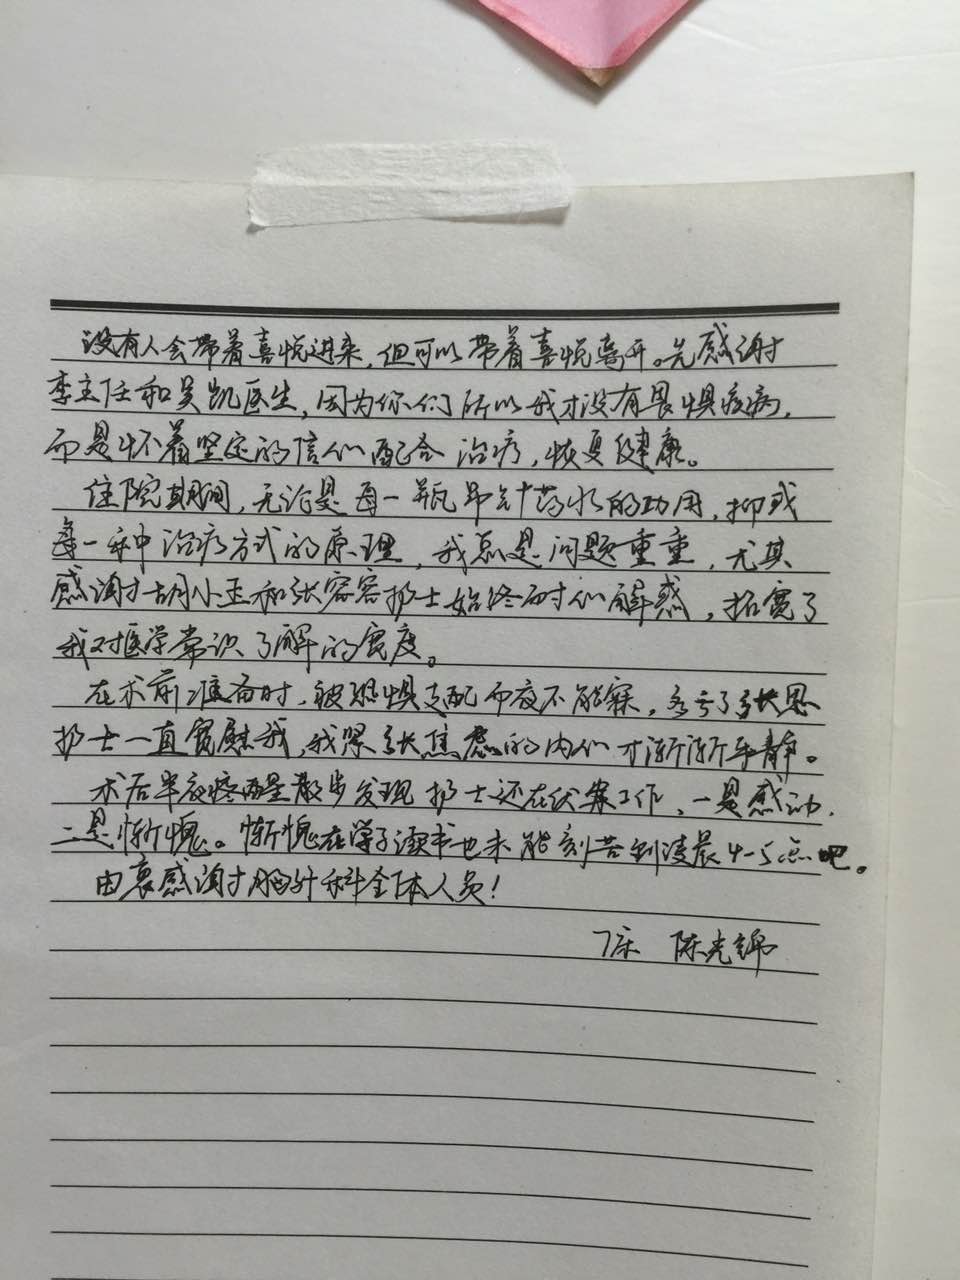 没有人会带着喜悦进来，但可以带着喜悦离开。先感谢
李主任和吴凯医生，因为你们所以我才没有畏惧疾病，
而是怀着坚定的信心配合治疗，恢复健康。
住院期间，无论是每一瓶吊针药水的功用，抑或
每一种治疗方式的原理，我总是问题重重，尤其
感谢胡小玉和张容容护士始终耐心解惑，拓宽了
我对医学常识了解的宽度。
在术前准备时，被恐惧支配而夜不能寐，多亏了张恩
护士一直宽慰我，我紧张焦虑的内心才渐渐平静。
术后半夜疼醒散步发现护士还在伏案工作，一是感动，
二是惭愧。惭愧在学子读书也未能刻苦到凌晨4-5点吧。
由衷感谢胸外科全体人员！
7床 陈光锦